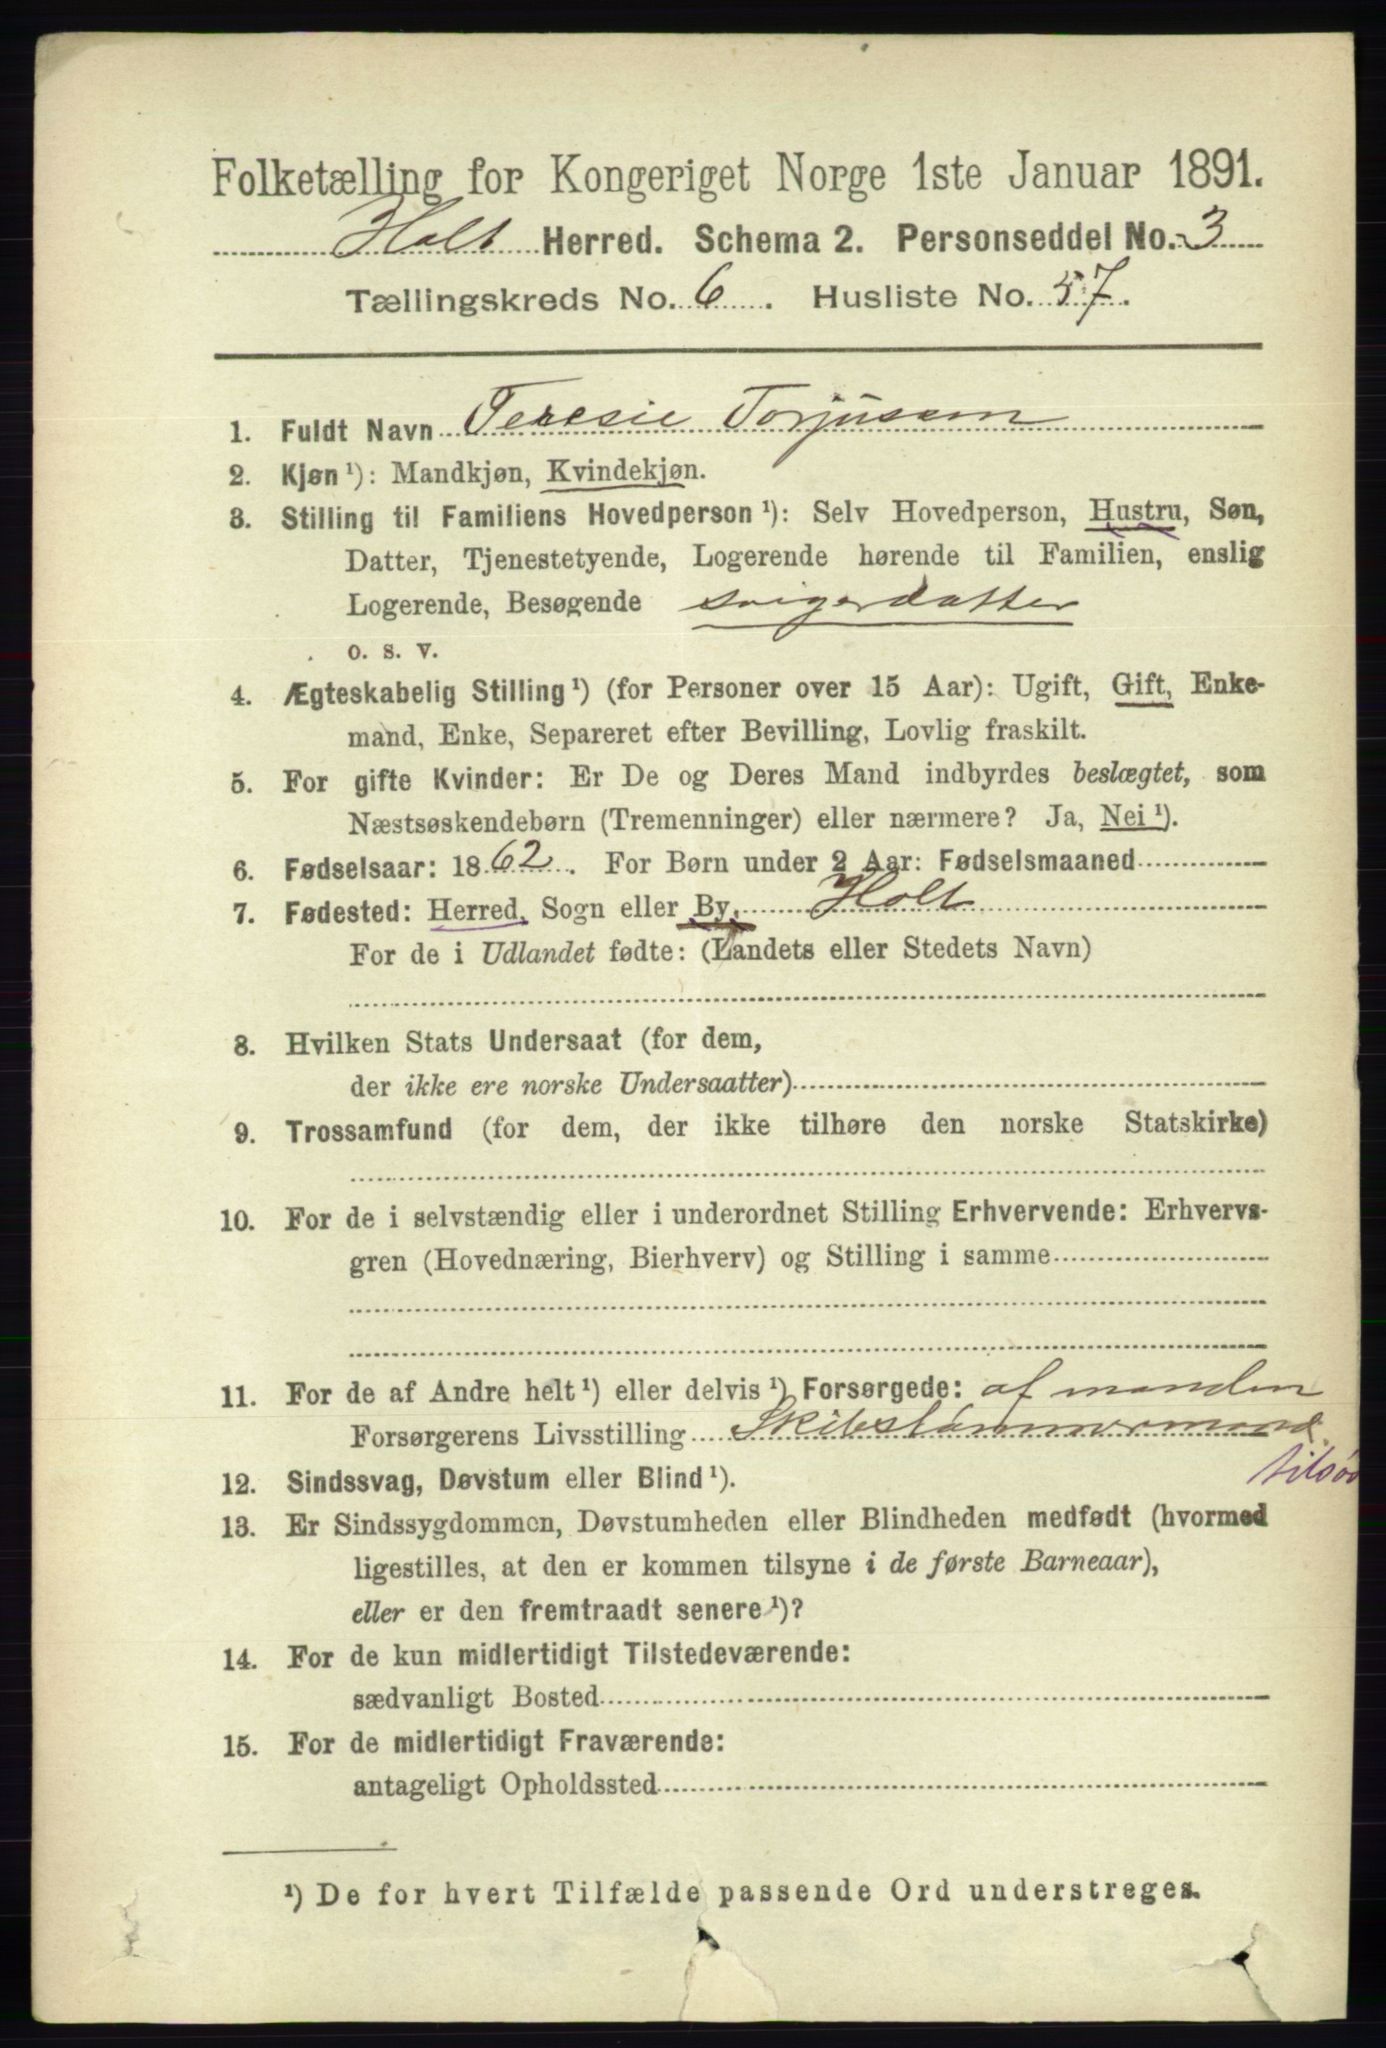 Folketælling for Kongeriget Norge 1ste Januar 1891.
Holt Herred. Schema 2. Personseddel No. 3
Tællingskreds No. 6. Husliste No. 57.
1. Fuldt Navn Teresie Torjussen
2. Kjøn ¹): Mandkjøn, Kvindekjøn.
3. Stilling til Familiens Hovedperson ¹): Selv Hovedperson, Hustru, Søn,
Datter, Tjenestetyende, Logerende hørende til Familien, enslig
Logerende, Besøgende svigerdatter
o. s. v.
4. Ægteskabelig Stilling ¹) (for Personer over 15 Aar): Ugift, Gift, Enke-
mand, Enke, Separeret efter Bevilling, Lovlig fraskilt.
5. For gifte Kvinder: Er De og Deres Mand indbyrdes beslægtet, som
Næstsøskendebørn (Tremenninger) eller nærmere? Ja, Nei ¹).
6. Fødselsaar: 1862. For Børn under 2 Aar: Fødselsmaaned
7. Fødested: Herred, Sogn eller By, Holt
For de i Udlandet fødte: (Landets eller Stedets Navn)
8. Hvilken Stats Undersaat (for dem,
der ikke ere norske Undersaatter)
9. Trossamfund (for dem, der ikke tilhøre den norske Statskirke)
10. For de i selvstændig eller i underordnet Stilling Erhvervende: Erhvervs-
gren (Hovednæring, Bierhverv) og Stilling i samme
11. For de af Andre helt ¹) eller delvis ¹) Forsørgede: af manden
Forsørgerens Livsstilling Skibstømmermand
tilsøs
12. Sindssvag, Døvstum eller Blind ¹).
13. Er Sindssygdommen, Døvstumheden eller Blindheden medfødt (hvormed
ligestilles, at den er kommen tilsyne i de første Barneaar),
eller er den fremtraadt senere ¹)?
14. For de kun midlertidigt Tilstedeværende:
sædvanligt Bosted
15. For de midlertidigt Fraværende:
antageligt Opholdssted
¹) De for hvert Tilfælde passende Ord understreges.